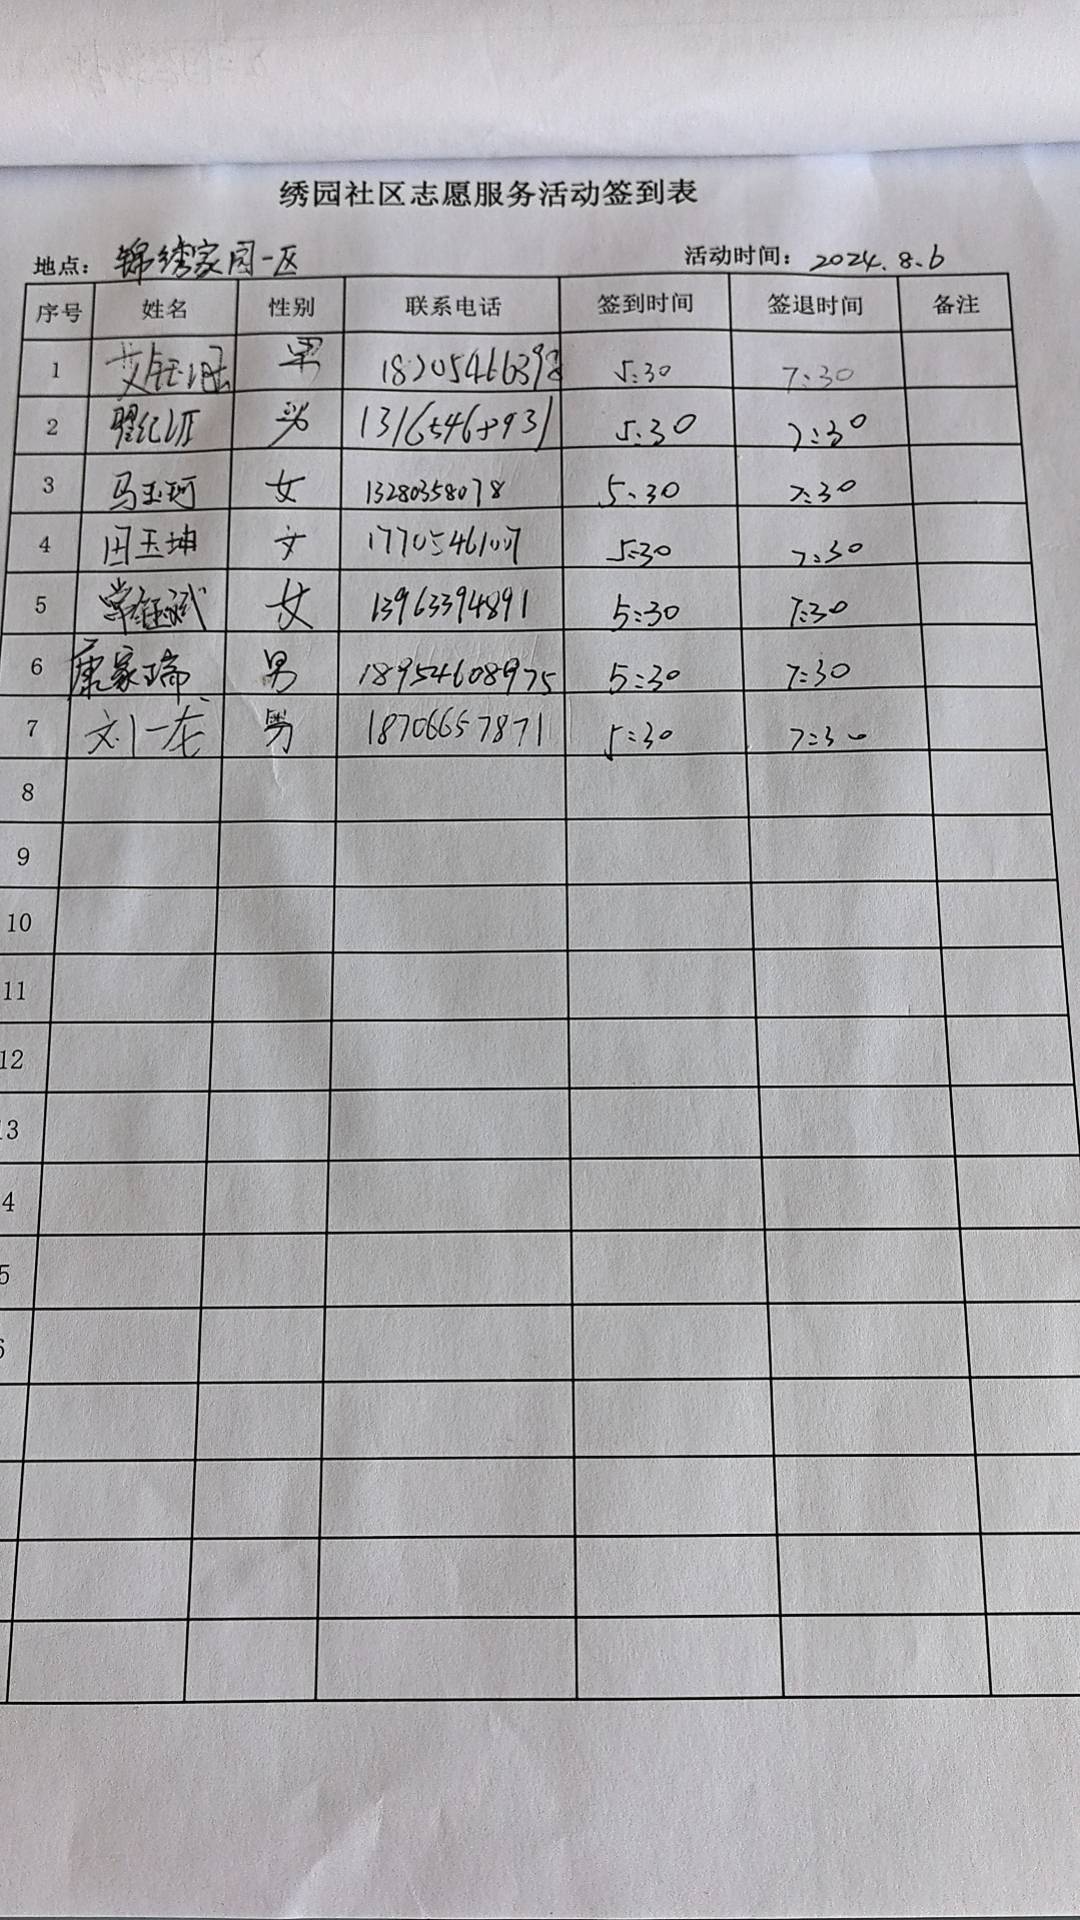 绣园社区志愿服务活动签到表
地点：锦绣家园一区 活动时间：2024.8.6
序号 姓名 性别 联系电话 签到时间 签退时间 备注
1 男 18205466398 5:30 7:30
2 男 5:30 7:30
3 马玉珂 女 13280358078 5:30 7:30
4 田玉坤 女 5:30 7:30
5 女 13963394891 5:30 7:30
6 康家瑞 男 18954608975 5:30 7:30
7 刘一龙 男 18706657871 5:30 7:30
8
9
10
11
12
13
4
5
6